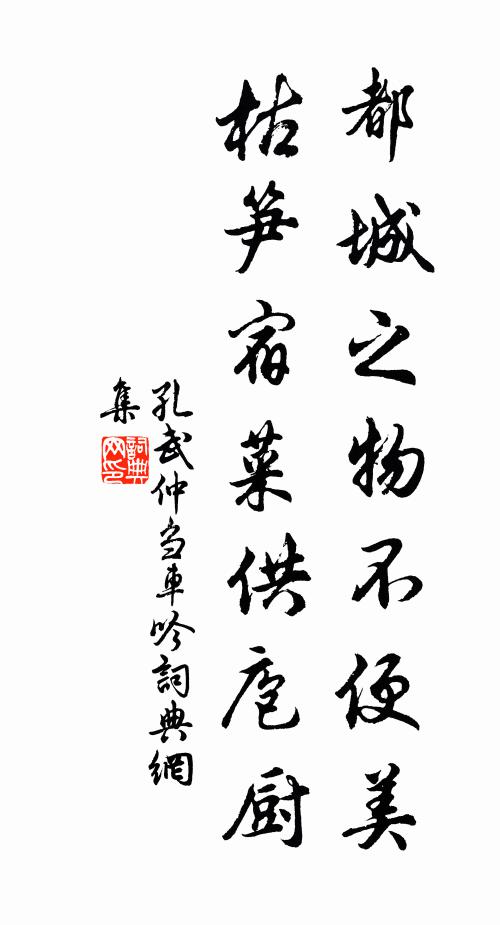 都城之物不便美
枯笋宿菜供庖厨
孔武仲芻車吟詞典網
集
詞典
网印